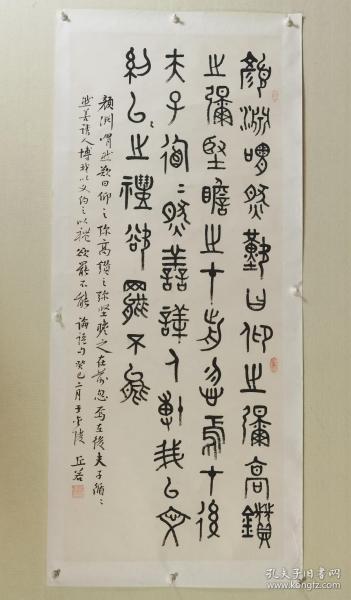 顔淵喟然歎曰仰之彌高鑽
之彌堅瞻之在前忽焉在後
夫子循〻然善誘人博我以文
約之以禮欲罷不能
顔渊喟然歎曰仰之弥高鑽之弥坚瞻之在前忽焉在後夫子循〻
然善誘人博我以文约之以禮欲罷不能 論語句 癸巳二月于金陵 丘石
孔夫子旧书网